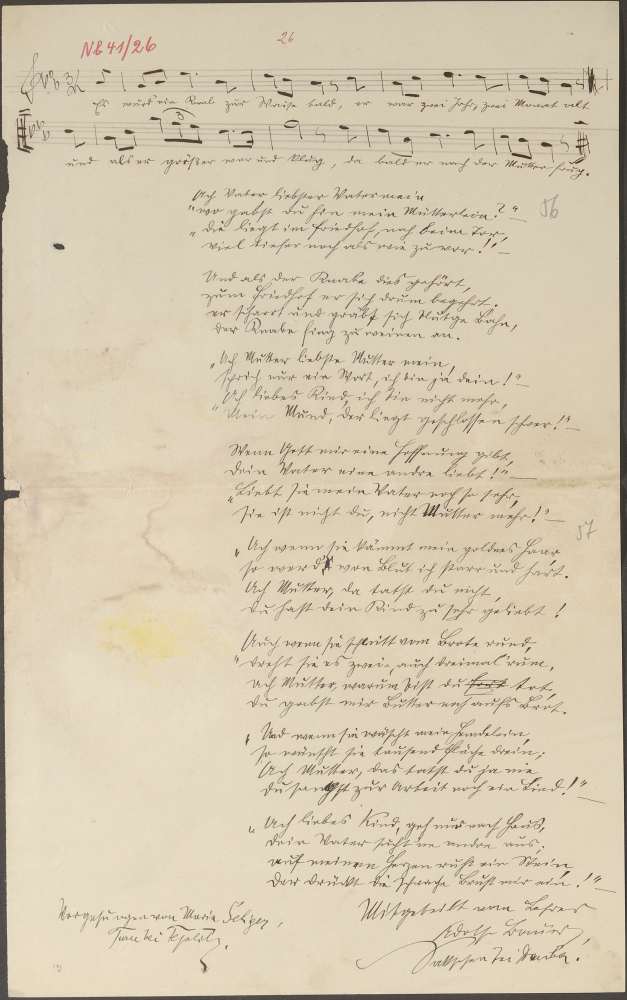 Nb 41/26
26
Es ward ein Knab zur Waise bald, er war zwei Jahr, zwei Monat alt
und als er größer war und klug, da bald er nach der Mutter frug.
Ach Vater liebster Vater mein
"wo gabst du hin mein Mütterlein?"
56
"Die liegt im Friedhof, nah beim Tor,
viel tiefer noch als wie zuvor!" –
Und als der Knabe dies gehört,
zum Friedhof er sich drum begehrt.
er scharrt und gräbt sich blutge Bahn,
der Knabe fing zu weinen an.
"Ach Mutter liebste Mutter mein,
sprich nur ein Wort, ich bin ja dein!" –
"Ach liebes Kind, ich bin nicht mehr,
Mein Mund, der liegt geschlossen schwer!" –
Wenn Gott mir eine Hoffnung gibt,
dein Vater eine andre liebt!" –
"Liebt sie mein Vater noch so sehr,
sie ist nicht du, nicht Mutter mehr!" –
57
"Ach wenn sie kämmt mein goldnes Haar
so werd von Blut ich starr und hart.
Ach Mutter, da tatst du nicht,
du hast dein Kind zu sehr geliebt!
Auch wenn sie schneidt vom Brote rund,
"dreht sie es zwei-, auch dreimal rum.
Ach Mutter, warum bist du tot,
du gabst mir Butter noch aufs Brot.
"Und wenn sie wäscht mein Hemdelein,
so wünscht sie tausend Flüche drein;
Ach Mutter, das tatst du ja nie
du sangst zur Arbeit noch ein Lied!" –
"Ach liebes Kind, geh nur nach Haus,
dein Vater sucht ne andre aus;
auf meinem Herzen ruht ein Stein,
der drückt die schwache Brust mir ein!" –
Vorgesungen von Marie
bei
Mitgeteilt vom Lehrer
Adolf Bauer,
bei